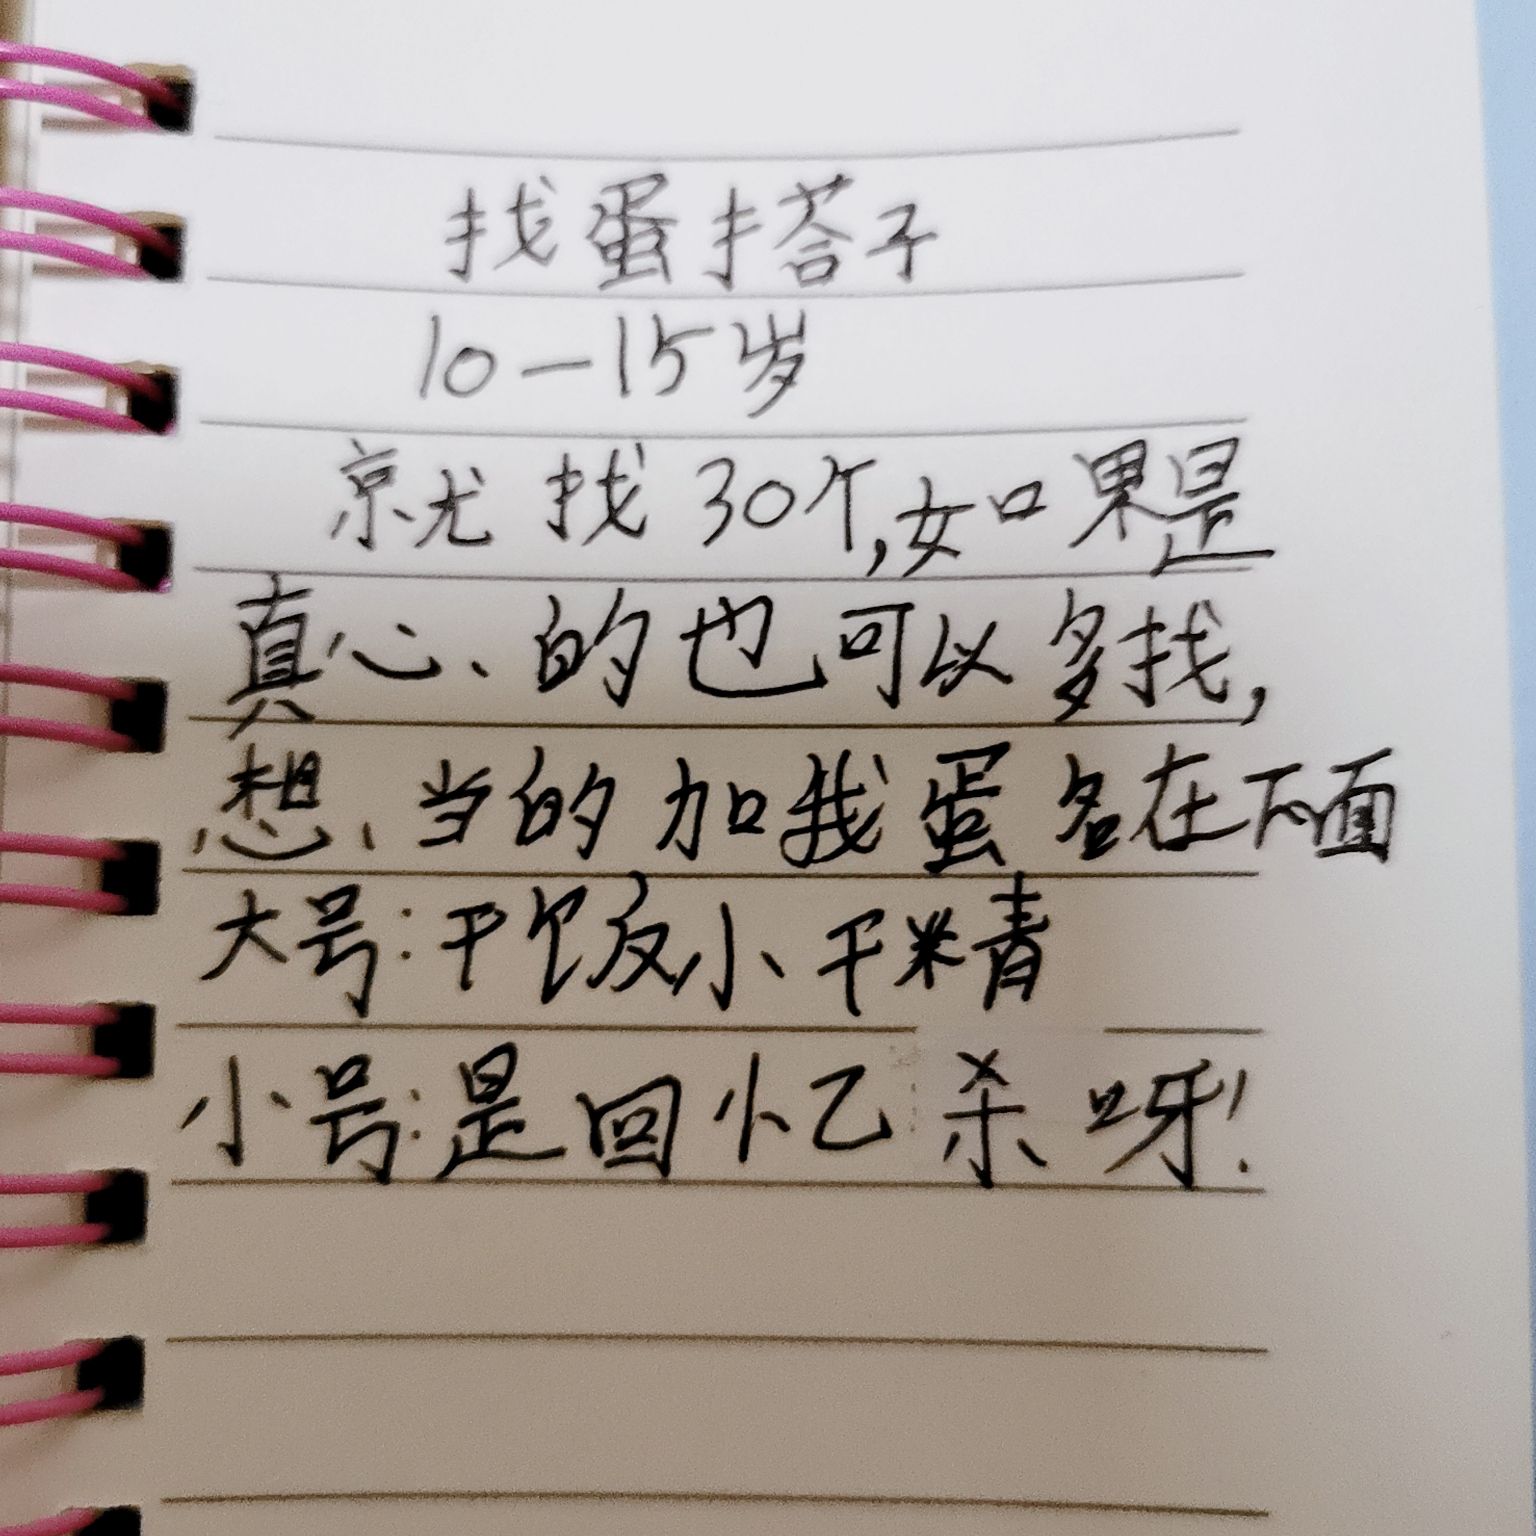 找蛋搭子
10—15岁
就找30个,如果是
真心、的也可以多找,
想、当的加我蛋名在下面
大号:干饭小干精
小号:是回忆杀呀!